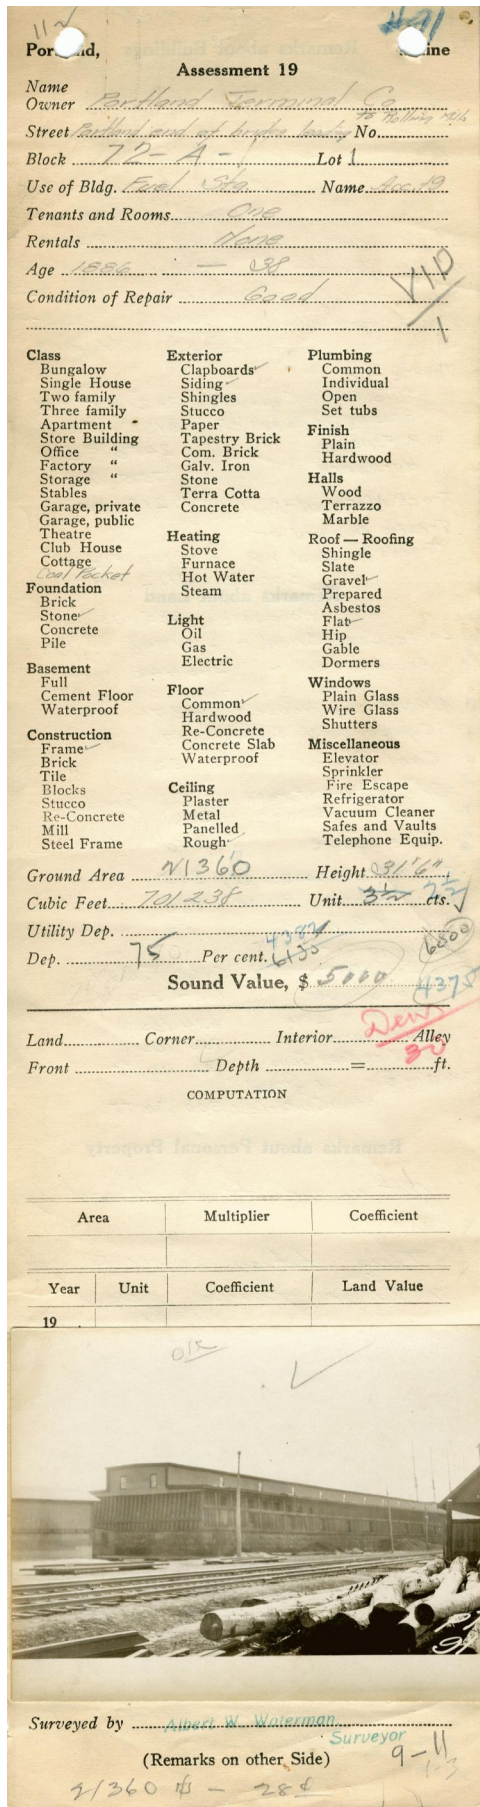 112
Portland, Maine
Assessment 19
Name
Owner Portland Terminal Co
to Rolling Mills
Street Portland end of bridge leading No.
Block 72-A-1 Lot 1
Use of Bldg. Fuel Sta. Name Acc. 19
Tenants and Rooms One
Rentals None
Age 1886 — 38
Condition of Repair Good
Class
Bungalow
Single House
Two family
Three family
Apartment
Store Building
Office "
Factory "
Storage "
Stables
Garage, private
Garage, public
Theatre
Club House
Cottage
Coal Pocket
Foundation
Brick
Stone ✓
Concrete
Pile
Basement
Full
Cement Floor
Waterproof
Construction
Frame ✓
Brick
Tile
Blocks
Stucco
Re-Concrete
Mill
Steel Frame
Exterior
Clapboards ✓
Siding ✓
Shingles
Stucco
Paper
Tapestry Brick
Com. Brick
Galv. Iron
Stone
Terra Cotta
Concrete
Heating
Stove
Furnace
Hot Water
Steam
Light
Oil
Gas
Electric
Floor
Common ✓
Hardwood
Re-Concrete
Concrete Slab
Waterproof
Ceiling
Plaster
Metal
Panelled
Rough ✓
Plumbing
Common
Individual
Open
Set tubs
Finish
Plain
Hardwood
Halls
Wood
Terrazzo
Marble
Roof — Roofing
Shingle
Slate
Gravel ✓
Prepared
Asbestos
Flat ✓
Hip
Gable
Dormers
Windows
Plain Glass
Wire Glass
Shutters
Miscellaneous
Elevator
Sprinkler
Fire Escape
Refrigerator
Vacuum Cleaner
Safes and Vaults
Telephone Equip.
Ground Area 21360 Height 31'6"
Cubic Feet 701238 Unit 3½ 2½ cts. ✓
Utility Dep.
4382 6000
Dep. 75 Per cent. 6135
Sound Value, $ 5000 4375
Land Corner Interior Alley
Front Depth = ft.
COMPUTATION
Area Multiplier Coefficient
Year Unit Coefficient Land Value
19
OK ✓
Surveyed by Albert W. Waterman
Surveyor
(Remarks on other Side) 9-11
1-3
21360 - 28¢